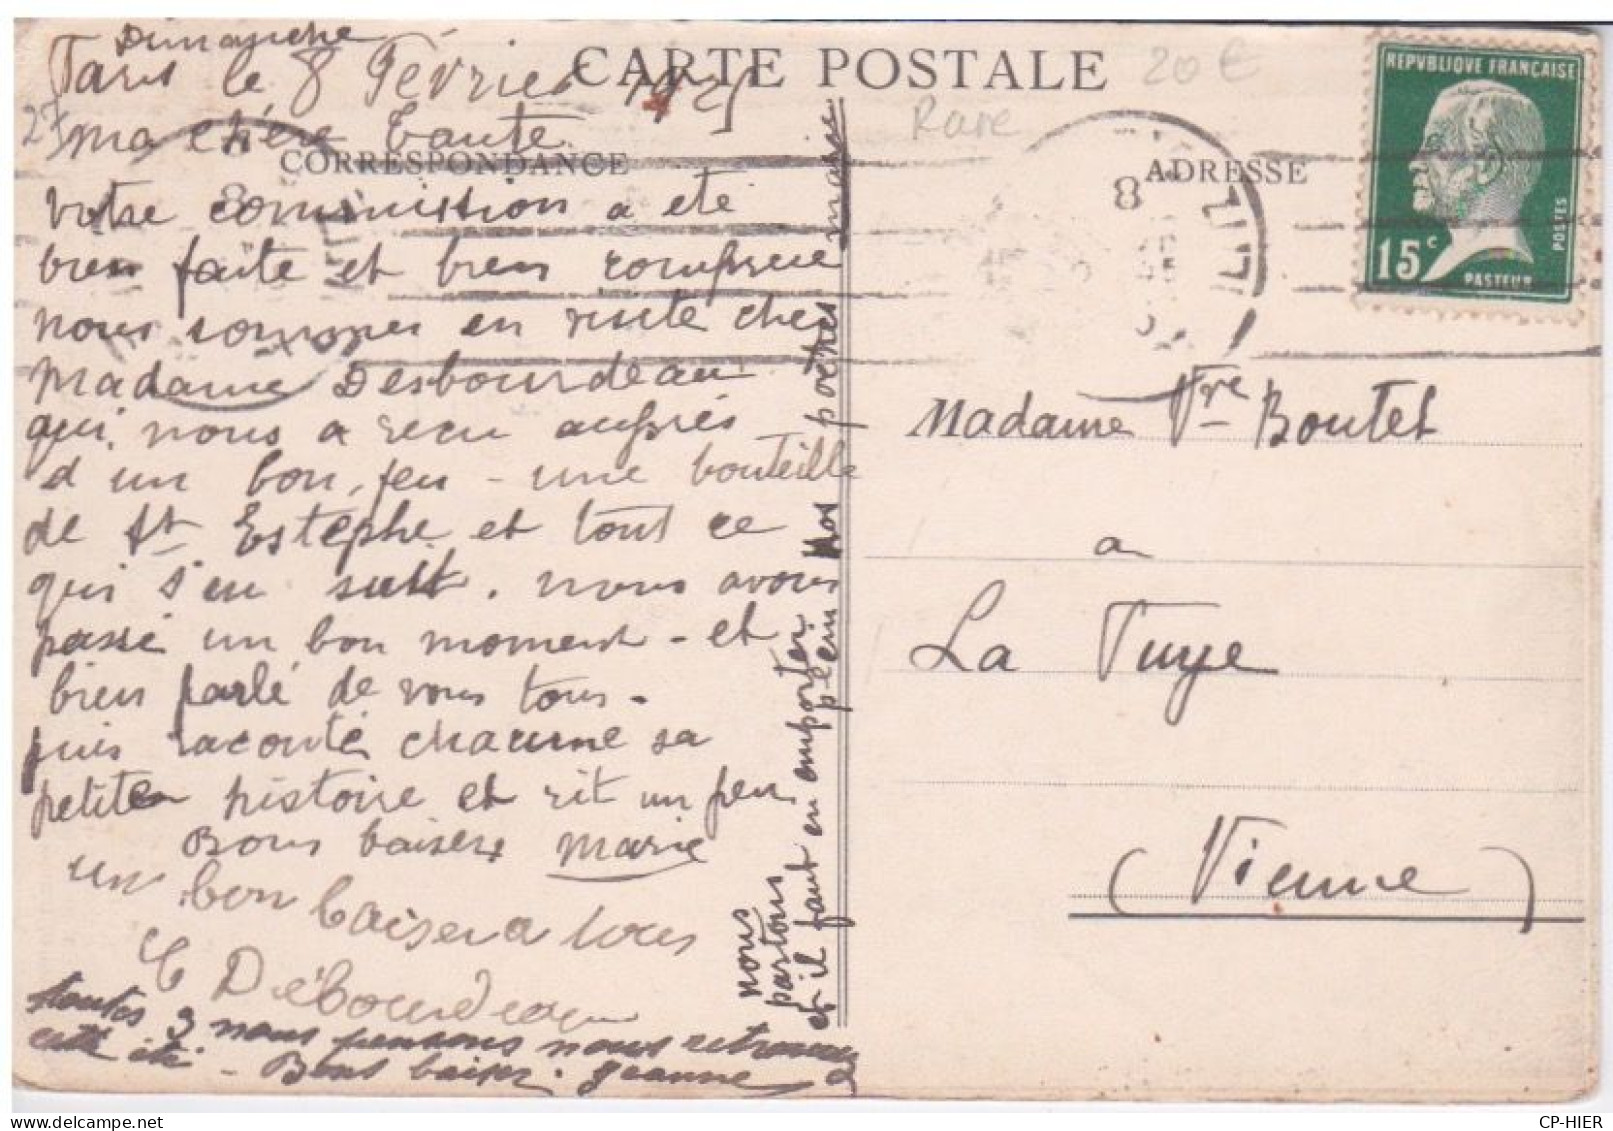 CARTE POSTALE
20 €
Rare
Dimanche
Paris le 8 Février 1925
27
ma chère tante
CORRESPONDANCE
votre commission a eté
bien faite et bien
nous sommes en visite chez
Madame Desbourdeau
qui nous a recu auprés
d un bon feu - une bouteille
de St Estephe et tout ce
qui s'en suit. nous avons
passé un bon moment - et
bien parlé de vous tous -
puis raconté chacune sa
petite histoire et rit un peu
Bons baisers Marie
un bon baiser a tous
D
toutes 3 nous pensons nous retrouver
cette été - Bons baiser. Jeanne
nous
partons
et il faut en emporter
plein nos poches
ADRESSE
8
REPUBLIQUE FRANÇAISE
15c
POSTES
PASTEUR
Madame Vve Boutet
a
La Tuye
(Vienne)
CP-HIER